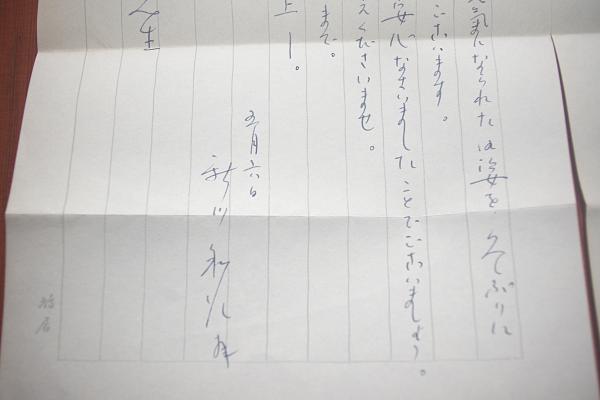 気になられたお姿を、久しぶりに
ございます。
なさいましたことでございましょう。
えくださいませ。
まで。
上
五月六日
新川和江 拝
生
鳩居